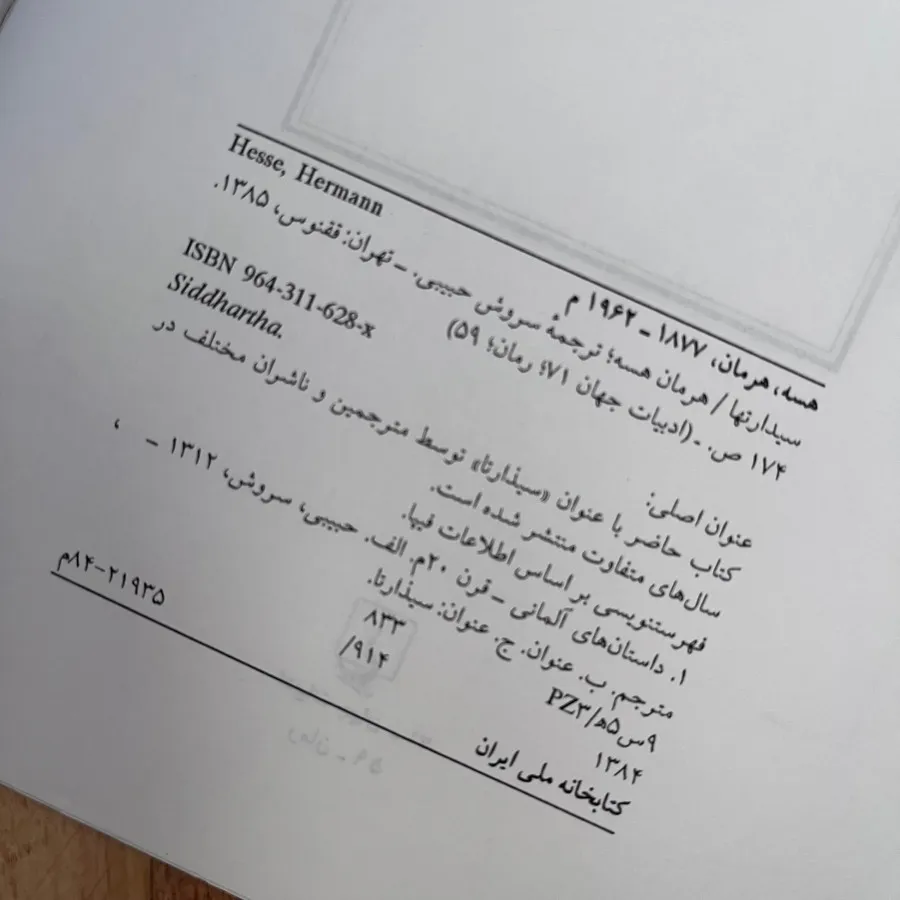 هسه، هرمان، ۱۸۷۷ ـ ۱۹۶۲ م Hesse, Hermann
سیدارتها / هرمان هسه؛ ترجمهٔ سروش حبیبی. ـ تهران: ققنوس، ۱۳۸۵.
۱۷۴ ص. ـ (ادبیات جهان ۷۱؛ رمان؛ ۵۹)
ISBN 964-311-628-x
عنوان اصلی: Siddhartha.
کتاب حاضر با عنوان «سیذارتا» توسط مترجمین و ناشران مختلف در
سال‌های متفاوت منتشر شده است.
فهرستنویسی بر اساس اطلاعات فیپا.
۱. داستان‌های آلمانی ـ قرن ۲۰م. الف. حبیبی، سروش، ۱۳۱۲ ـ ،
مترجم. ب. عنوان. ج. عنوان: سیذارتا.
۹س۵ه‍/PZ۳ ۸۳۳
۱۳۸۴ /۹۱۴
کتابخانه ملی ایران ۲۱۹۳۵-۸۴م